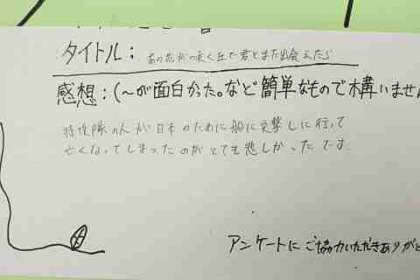 タイトル: あの花が咲く丘で君とまた出会えたら
感想:(〜が面白かった。など簡単なもので構いません
特攻隊の人が日本のために船に突撃しに行って
亡くなってしまったのがとても悲しかったです
アンケートにご協力いただきありがと